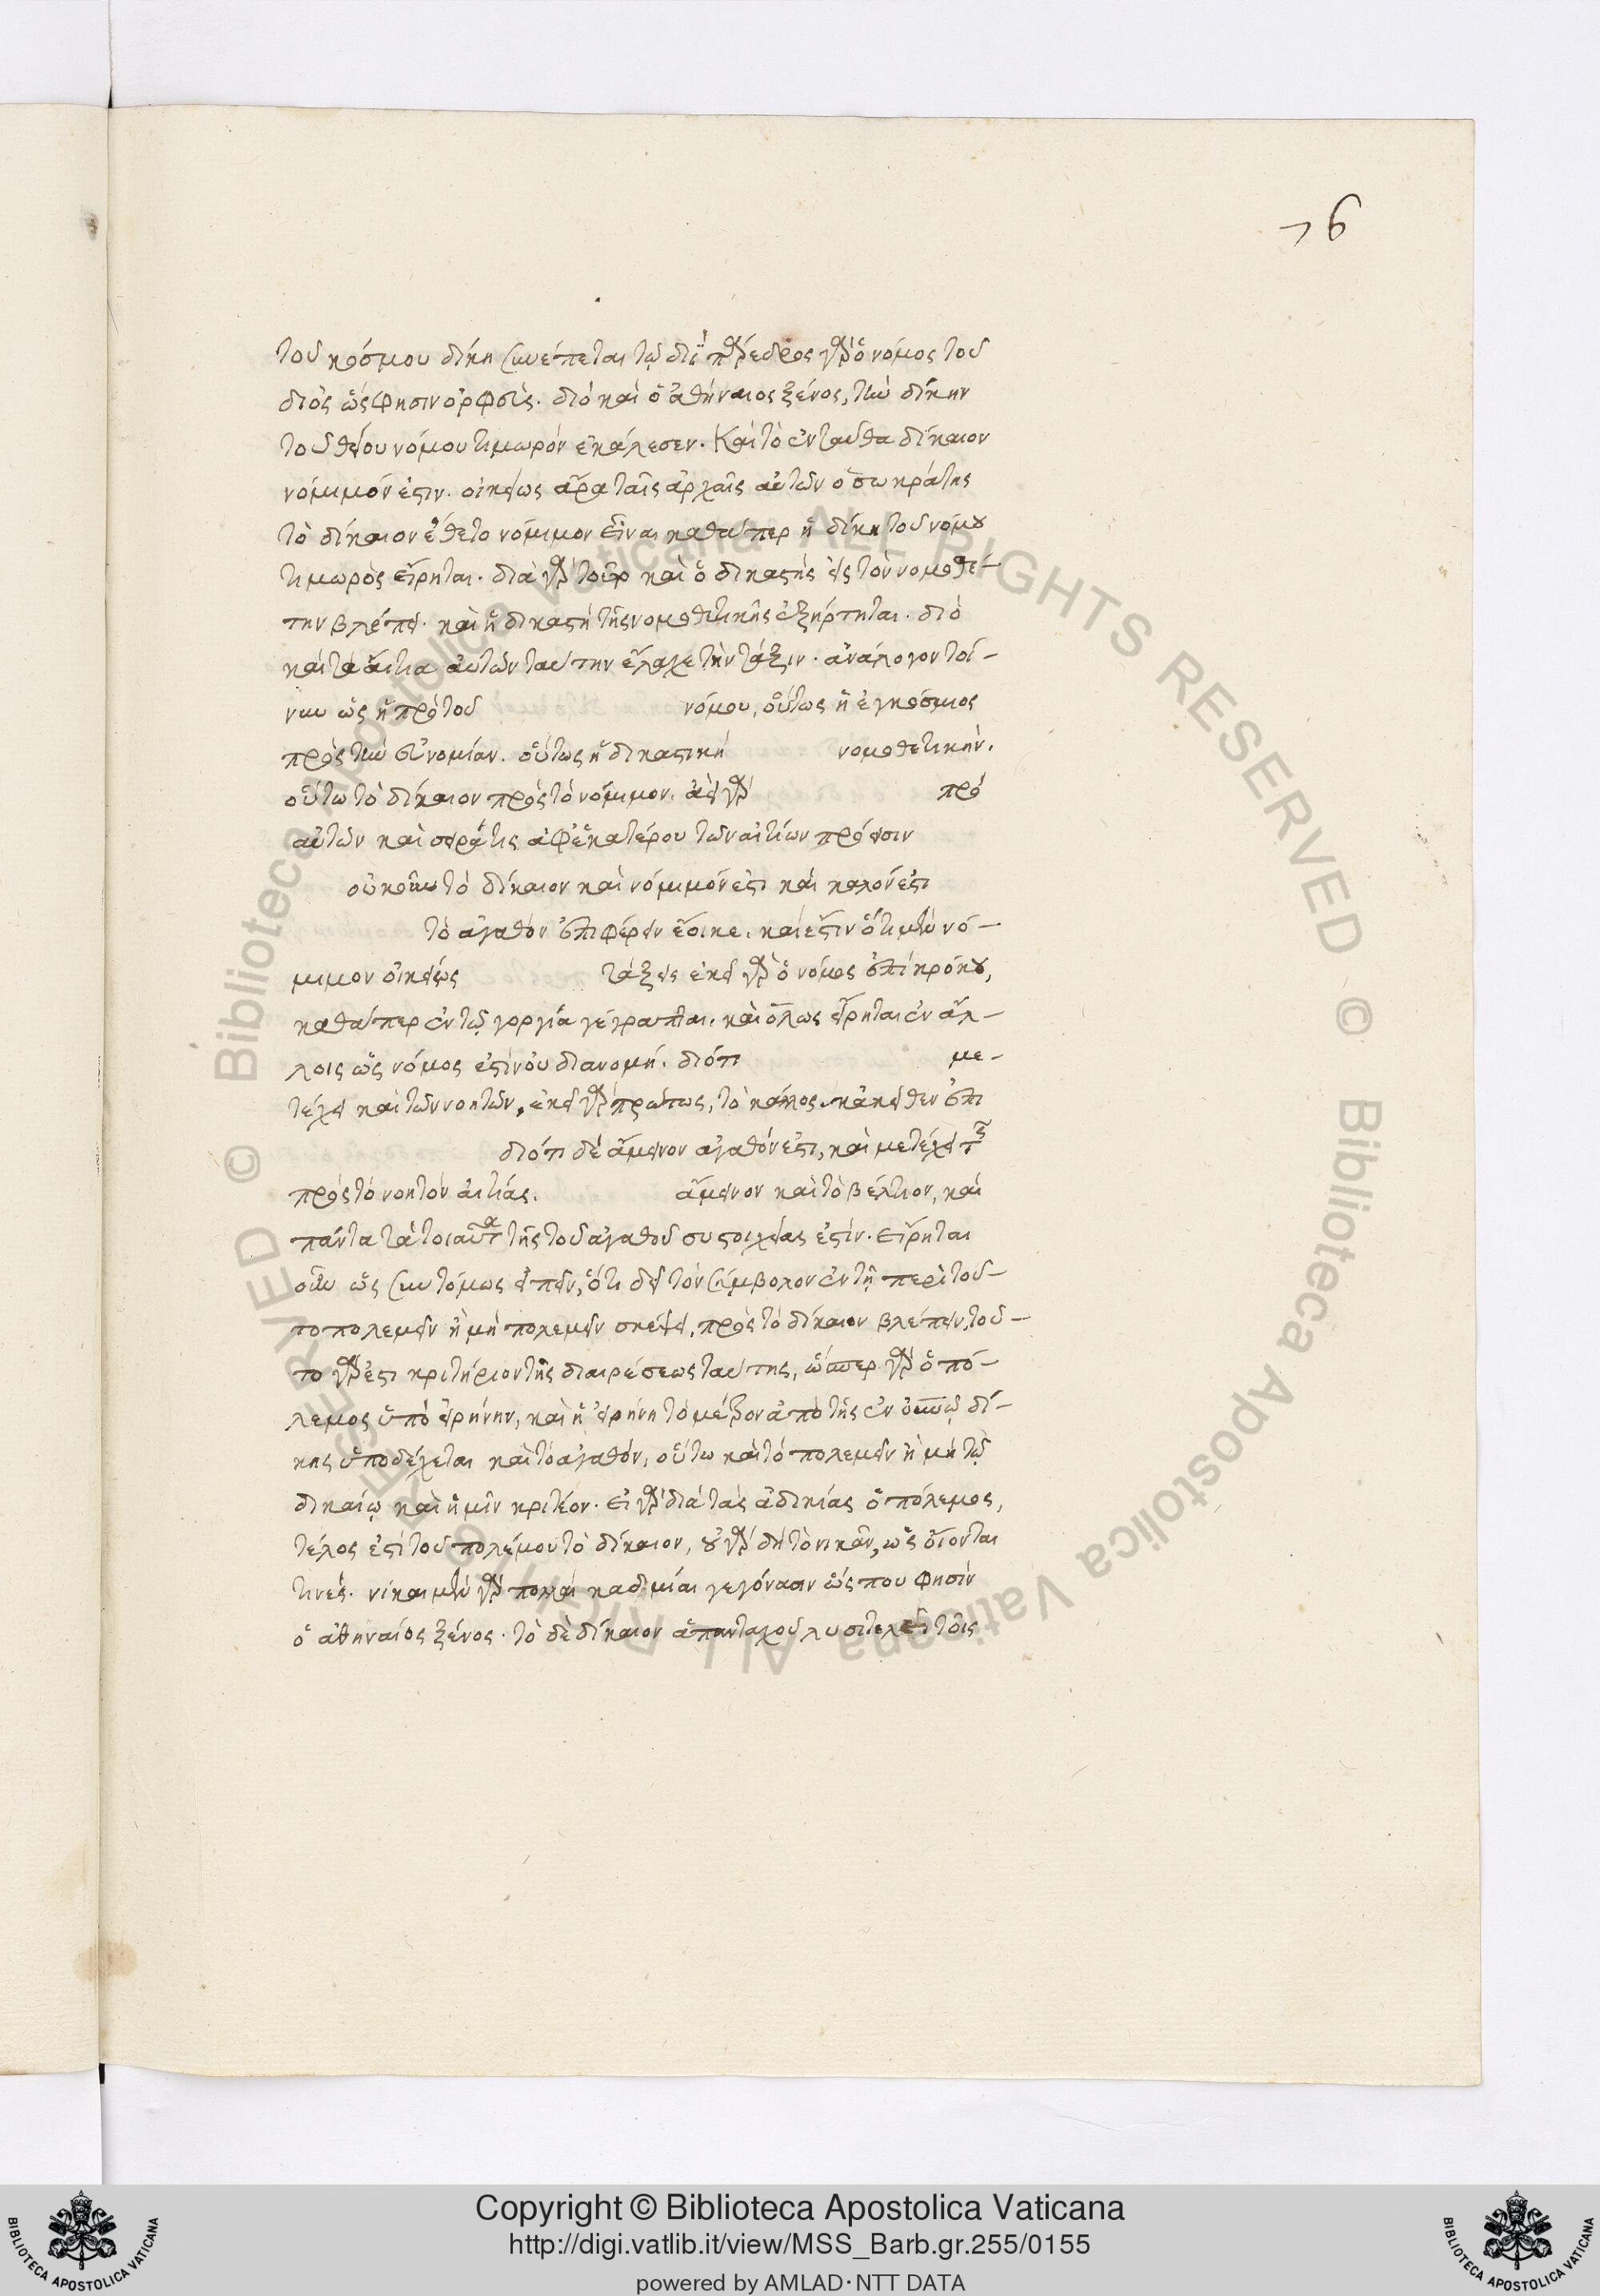 76
τοῦ κόσμου δίκη συνέπεται τῷ διί πάρεδρος γὰρ ὁ νόμος τοῦ
διὸς ὥς φησιν ὀρφεὺς. διὸ καὶ ὁ ἀθήναιος ξένος, τὴν δίκην
τοῦ θείου νόμου τιμωρόν ἐκάλεσεν. Καὶ τὸ ἐνταῦθα δίκαιον
νόμιμόν ἐστιν. οἰκείως ἄρα ταῖς ἀρχαῖς αὐτῶν ὁ σωκράτης
τὸ δίκαιον ἔθετο νόμιμον εἶναι καθάπερ ἡ δίκη τοῦ νόμου
τιμωρὸς εἴρηται. διὰ γὰρ τοῦτο καὶ ὁ δικαστὴς εἰς τὸν νομοθέ-
την βλέπει. καὶ ἡ δικαστὴ τῆς νομοθετικῆς ἐξήρτηται. διὸ
καὶ τὰ αἴτια αὐτῶν ταύτην ἔλαχε τὴν τάξιν. ἀνάλογον τοί-
νυν ὡς ἡ πρὸ τοῦ νόμου, οὕτως ἡ ἐγκόσμιος
πρὸς τὴν εὐνομίαν. οὕτως ἡ δικαστικὴ νομοθετικήν.
οὕτω τὸ δίκαιον πρὸς τὸ νόμιμον. ἀεὶ γὰρ πρό
αὐτῶν καὶ σειρά τις ἀφ' ἑκατέρου τῶν αἰτίων πρόεισιν
οὐκοῦν τὸ δίκαιον καὶ νόμιμόν ἐστι καὶ καλόν ἐστι
τὸ ἀγαθὸν ἐπιφέρειν ἔοικε. καὶ ἔστιν ὅτι μὲν νό-
μιμον οἰκείως τάξεις ἐκεῖ γὰρ ὁ νόμος ἐπὶ κρόνου,
καθάπερ ἐν τῷ γοργίᾳ γέγραπται. καὶ ὅλως εἴρηται ἐν ἄλ-
λοις ὡς νόμος ἐστὶ νοῦ διανομή. διότι με-
τέχει καὶ τῶν νοητῶν, ἐκεῖ γὰρ πρώτως, τὸ κάλλος. κἀκεῖθεν ἐπὶ
διότι δὲ ἄμεινον ἀγαθόν ἐστι, καὶ μετέχει τῆς
πρὸς τὸ νοητὸν αἰτίας. ἄμεινον καὶ τὸ βέλτιον, καὶ
πάντα τὰ τοιαῦτα τῆς τοῦ ἀγαθοῦ συστοιχείας ἐστίν. Εἴρηται
οὖν ὡς συντόμως εἰπεῖν, ὅτι δεῖ τὸν σύμβολον ἐν τῇ περὶ τοῦ-
το πολεμεῖν ἢ μὴ πολεμεῖν σκέψει, πρὸς τὸ δίκαιον βλέπειν, τοῦ-
το γὰρ ἐστι κριτήριον τῆς διαιρέσεως ταύτης, ὥσπερ γὰρ ὁ πό-
λεμος ὑπὸ εἰρήνην, καὶ ἡ εἰρήνη τὸ μέτρον ἀπὸ τῆς ἐν οὐρανῷ δί-
κης ὑποδέχεται καὶ τὸ ἀγαθόν, οὕτω καὶ τὸ πολεμεῖν ἢ μὴ τῷ
δικαίῳ καὶ ἡμῖν κριτέον. Εἰ γὰρ διὰ τὰς ἀδικίας ὁ πόλεμος,
τέλος ἐστὶ τοῦ πολέμου τὸ δίκαιον, οὐ γὰρ δὴ τὸ νικᾶν, ὡς οἴονται
τινές. νίκαι μὲν γὰρ πολλαὶ καδμίαι γεγόνασιν ὥς που φησὶν
ὁ ἀθηναίος ξένος. τὸ δὲ δίκαιον ἁπανταχοῦ λυσιτελεῖ τοῖς
Copyright © Biblioteca Apostolica Vaticana
http://digi.vatlib.it/view/MSS_Barb.gr.255/0155
powered by AMLAD·NTT DATA
BIBLIOTECA APOSTOLICA VATICANA
BIBLIOTECA APOSTOLICA VATICANA
© Biblioteca Apostolica Vaticana ALL RIGHTS RESERVED © Biblioteca Apostolica Vaticana ALL RIGHTS RESERVED